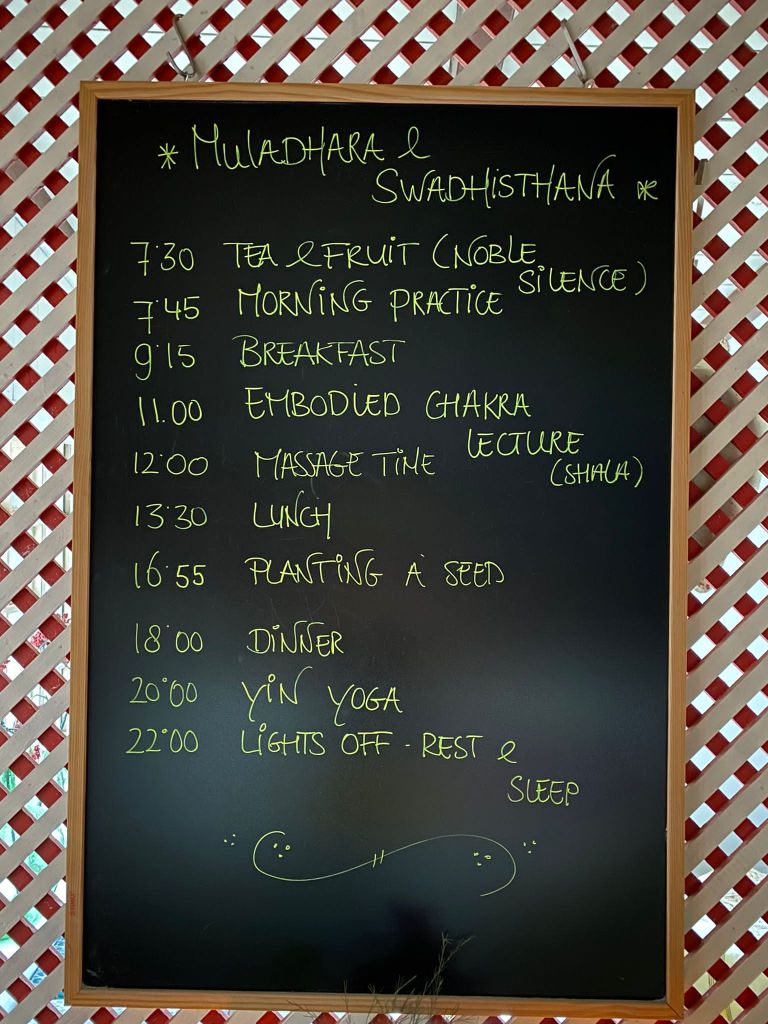 * MULADHARA &
SWADHISTHANA *
7:30 TEA & FRUIT (NOBLE
SILENCE)
7:45 MORNING PRACTICE
9:15 BREAKFAST
11.00 EMBODIED CHAKRA
LECTURE
(SHALA)
12:00 MASSAGE TIME
13:30 LUNCH
16:55 PLANTING A SEED
18:00 DINNER
20:00 YIN YOGA
22:00 LIGHTS OFF · REST &
SLEEP